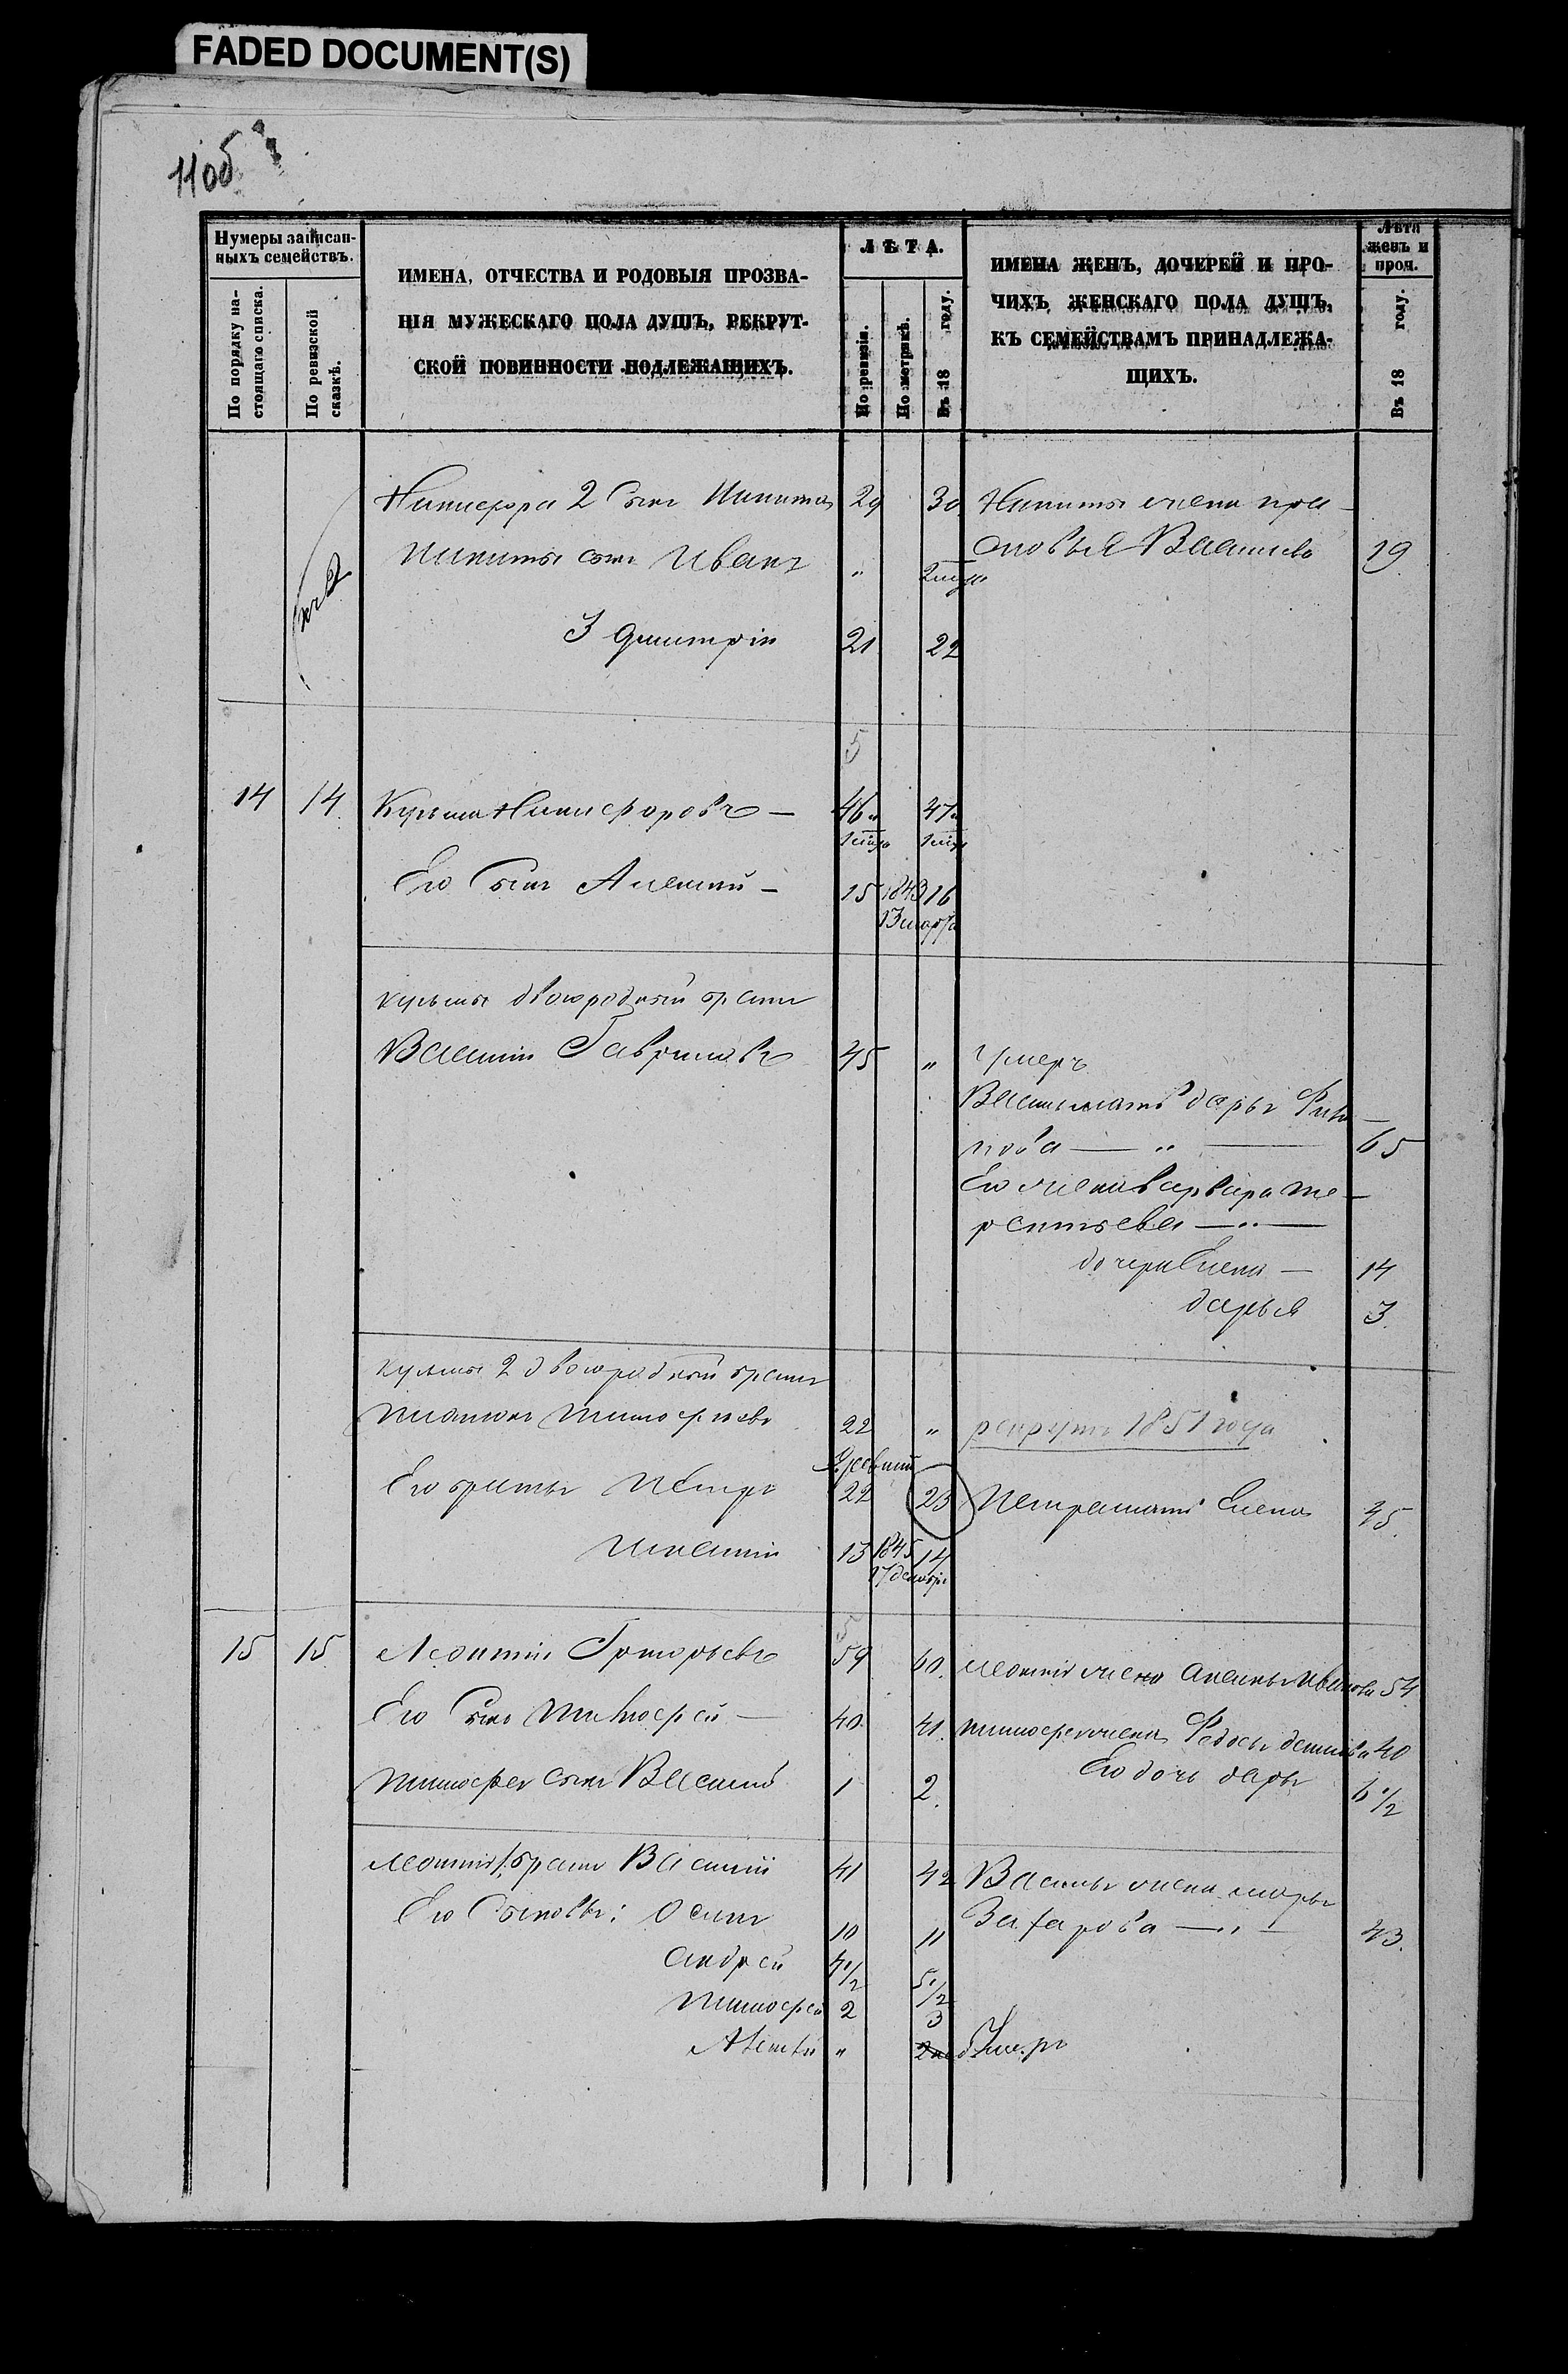 FADED DOCUMENT(S)
11об
Нумеры записан-
ныхъ семействъ.
По порядку на-
стоящаго списка.
По ревизской
сказкѣ.
ИМЕНА, ОТЧЕСТВА И РОДОВЫЯ ПРОЗВА-
НІЯ МУЖЕСКАГО ПОЛА ДУШЪ, РЕКРУТ-
СКОЙ ПОВИННОСТИ ПОДЛЕЖАЩИХЪ.
ЛѢТА.
По ревизіи.
По метрикѣ.
Въ 18 году.
ИМЕНА ЖЕНЪ, ДОЧЕРЕЙ И ПРО-
ЧИХЪ ЖЕНСКАГО ПОЛА ДУШЪ,
КЪ СЕМЕЙСТВАМЪ ПРИНАДЛЕЖА-
ЩИХЪ.
Лѣта
женъ и
проч.
Въ 18 году.
Никифора 2 Сынъ Никита 29 30 Никиты жена Пра-
Никиты сынъ Иванъ " сковья Васильева 19
3 Дмитрій 21 22
5
14 14 Кузьма Никифоровъ — 46 47
Его Сынъ Алексѣй — 15 1843 16
13 марта
Кузьмы двоюродный братъ
Василій Гавриловъ 45 " умеръ
Васильи мать Дарья
пова — " — 65
Его жена Варвара Те-
рентьева — " —
дочери Елена — 14
Дарья 3.
Кузьмы 2 двоюродный братъ
Платонъ Тимофеевъ 22 " рекрутъ 1851 года
Его братья Петръ 22 23 Петра мать Елена 45.
Игнатій 13 1845 14
17 декабря
5
15 15 Леонтій Григорьевъ 59 60. Леонтія жена Аксинья Иванова 54
Его Сынъ Тимофей — 40 41. Тимофея жена Федосья 40
Тимофея сынъ Василій 1 2. Его дочь Дарья 6 1/2
Леонтія братъ Василій 41 42 Василья жена Марья
Его Сыновья: Осипъ 10 11 Захарова — " — 43.
Андрей 4 1/2 5 1/2
Тимофей 2 3
" Умеръ